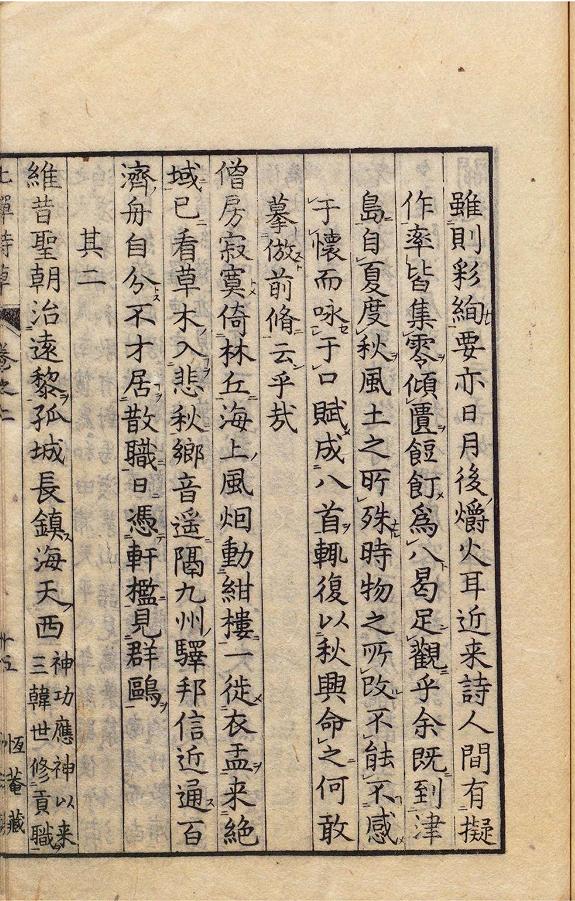 雖則彩絢要亦日月後爝火耳近来詩人間有擬
作率皆集零傾匱餖飣為八曷足觀乎余既到津
島自夏度秋風土之所殊時物之所改不能不感
于懷而咏于口賦成八首輒復以秋興命之何敢
摹倣前脩云乎哉
僧房寂寞倚林丘海上風烟動紺樓一徙衣盂来絶
域已看草木入悲秋鄉音遥隔九州驛邦信近通百
濟舟自分不才居散職日憑軒檻見群鷗
其二
維昔聖朝治遠黎孤城長鎮海天西神功應神以来三韓世修貢職
詩草 卷之二 十五 恆菴藏